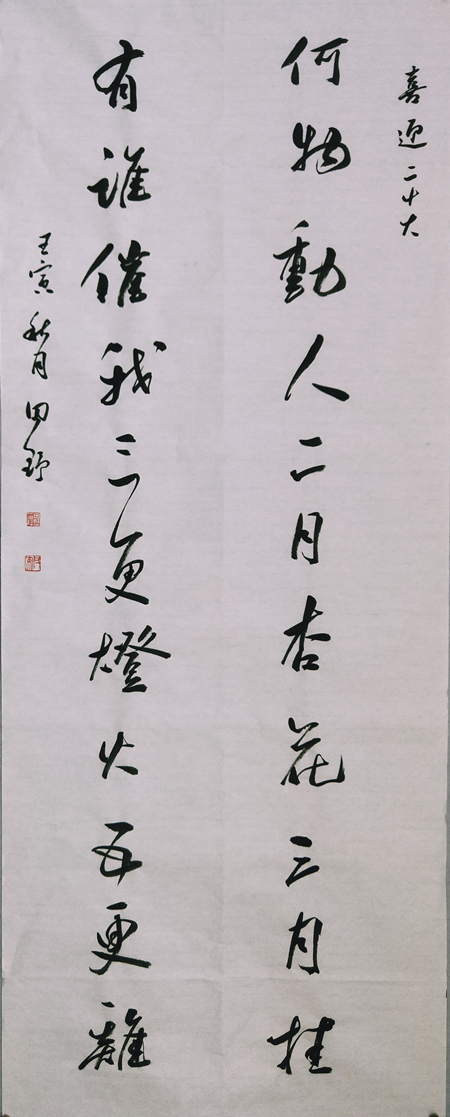 喜迎二十大
何物動人二月杏花三月桂
有誰催我三更燈火五更雞
壬寅秋月田野